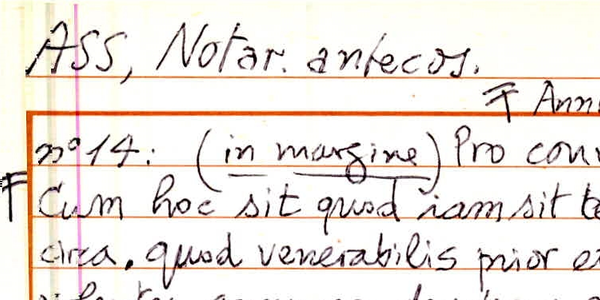 ASS, Notar. antecos.
Ŧ Ann
nº 14: (in margine) Pro con
Ŧ Cum hoc sit quod iam sit te
circa, quod venerabilis prior e